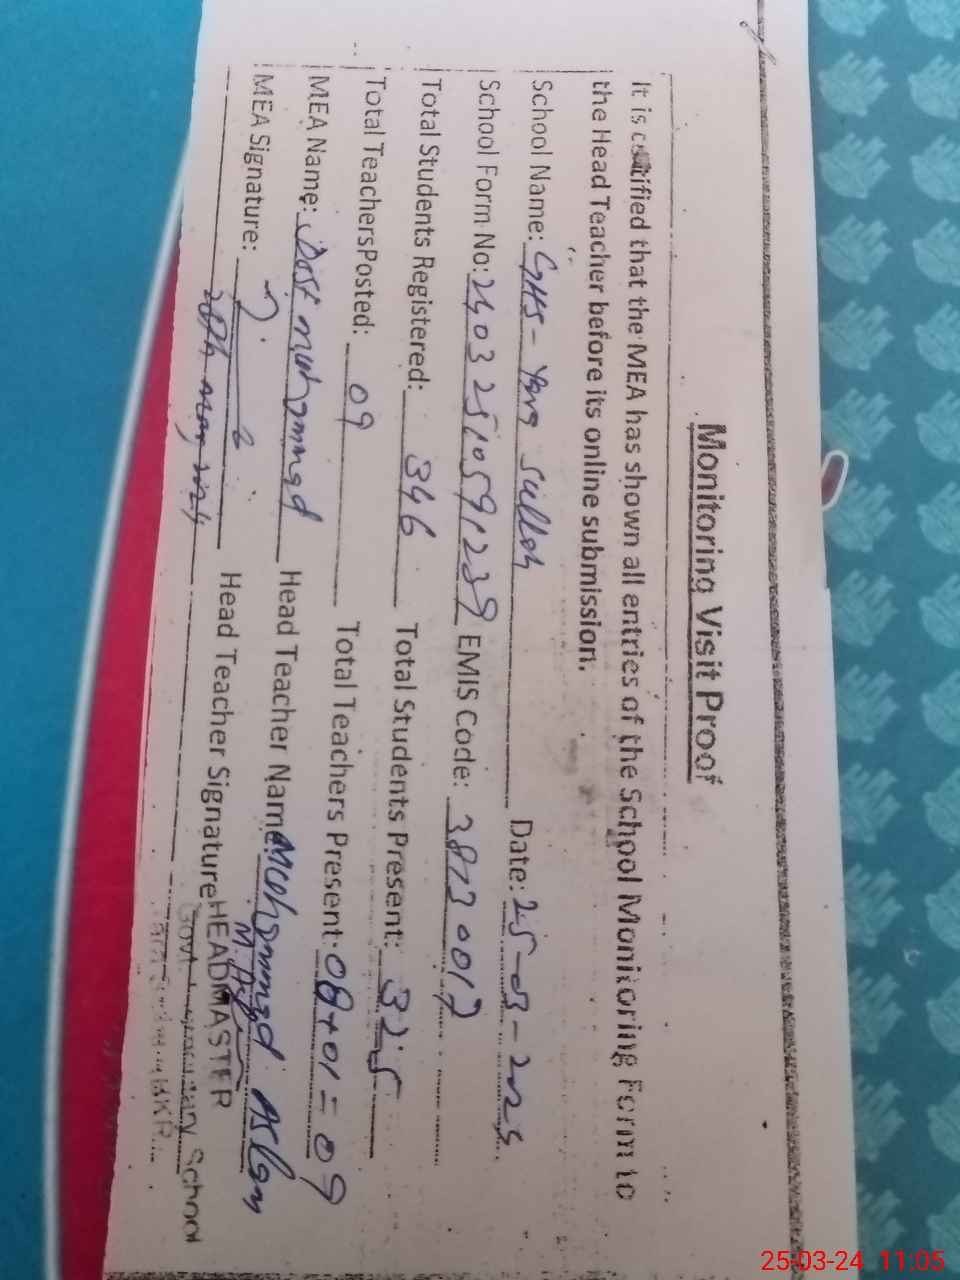 Monitoring Visit Proof
It is certified that the MEA has shown all entries of the School Monitoring Form to
the Head Teacher before its online submission.
School Name: GHS - Date: 25-03-2024
School Form No: 2403 2510591239 EMIS Code: 38230017
Total Students Registered: 346 Total Students Present: 325
Total TeachersPosted: 09 Total Teachers Present: 08+01=09
MEA Name: Dost muhammad Head Teacher Name Muhammad Aslam
MEA Signature: Head Teacher Signature HEADMASTER
Govt School
25-03-24 11:05